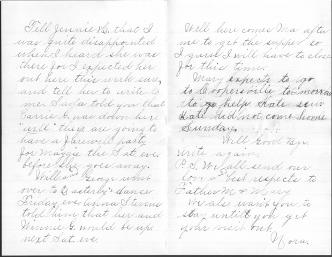 Tell Jennie B. that I
was quite disappointed
when I heard she was
there for I expected her
out here this week sure
and tell her to write to
me. told you that
Carrie G. was down here
" " they are going to
have a farewell party
for Maggie the Sat. eve
before she goes away.
Will and George went
over to dance
Friday eve Anna Stevens
told him that her and
Winnie G. would be up
next Sat. eve
Well here comes Ma after
me to get the supper so
I guess I will have to close
for this time.
Mary expects to go
to Cooperville tomorrow
to go help Kate sew
Kate did not come home
Sunday.
Will Good bye
write again
P.S. We all send our
love & best respects to
Father M &
We also want you to
stay until you get
your visit out.
Nora.